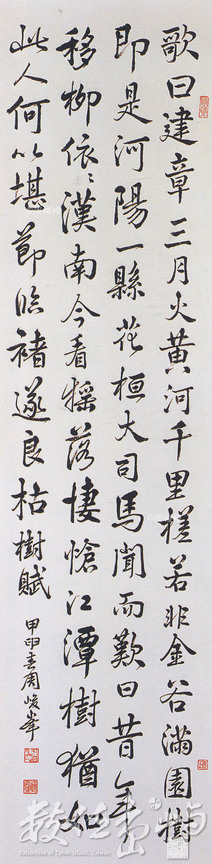 歌曰建章三月火黃河千里槎若非金谷滿園樹
即是河陽一縣花桓大司馬聞而歎曰昔年
移柳依〻漢南今看搖落悽愴江潭樹猶如
此人何以堪 節臨褚遂良枯樹賦
甲申春周峻峯